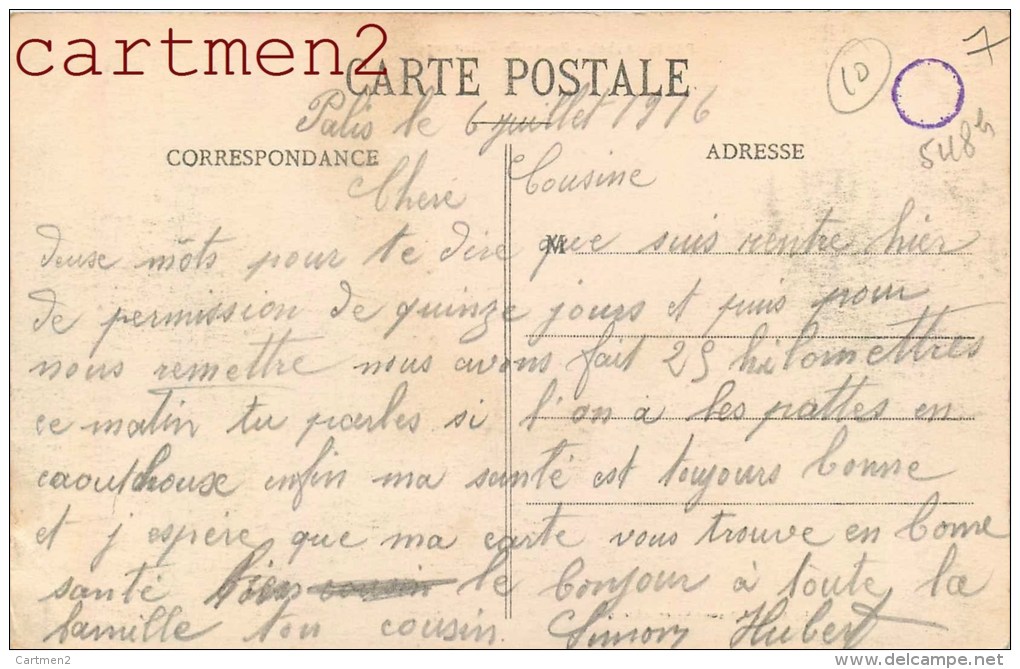 cartmen2
CARTE POSTALE
10
7
548
Palis le 6 juillet 1916
CORRESPONDANCE
ADRESSE
Chere Cousine
M
deuse môts pour te dire que suis rentre hier
de permission de quinze jours et puis pour
nous remettre nous avons fait 25 kilomettres
ce matin tu parles si l'on a les pattes en
caoutchouse enfin ma santé est toujours bonne
et j espére que ma carte vous trouve en bonne
santé bien le bonjour à toute la
famille ton cousin. Simon Hubert
Cartmen2
www.delcampe.net